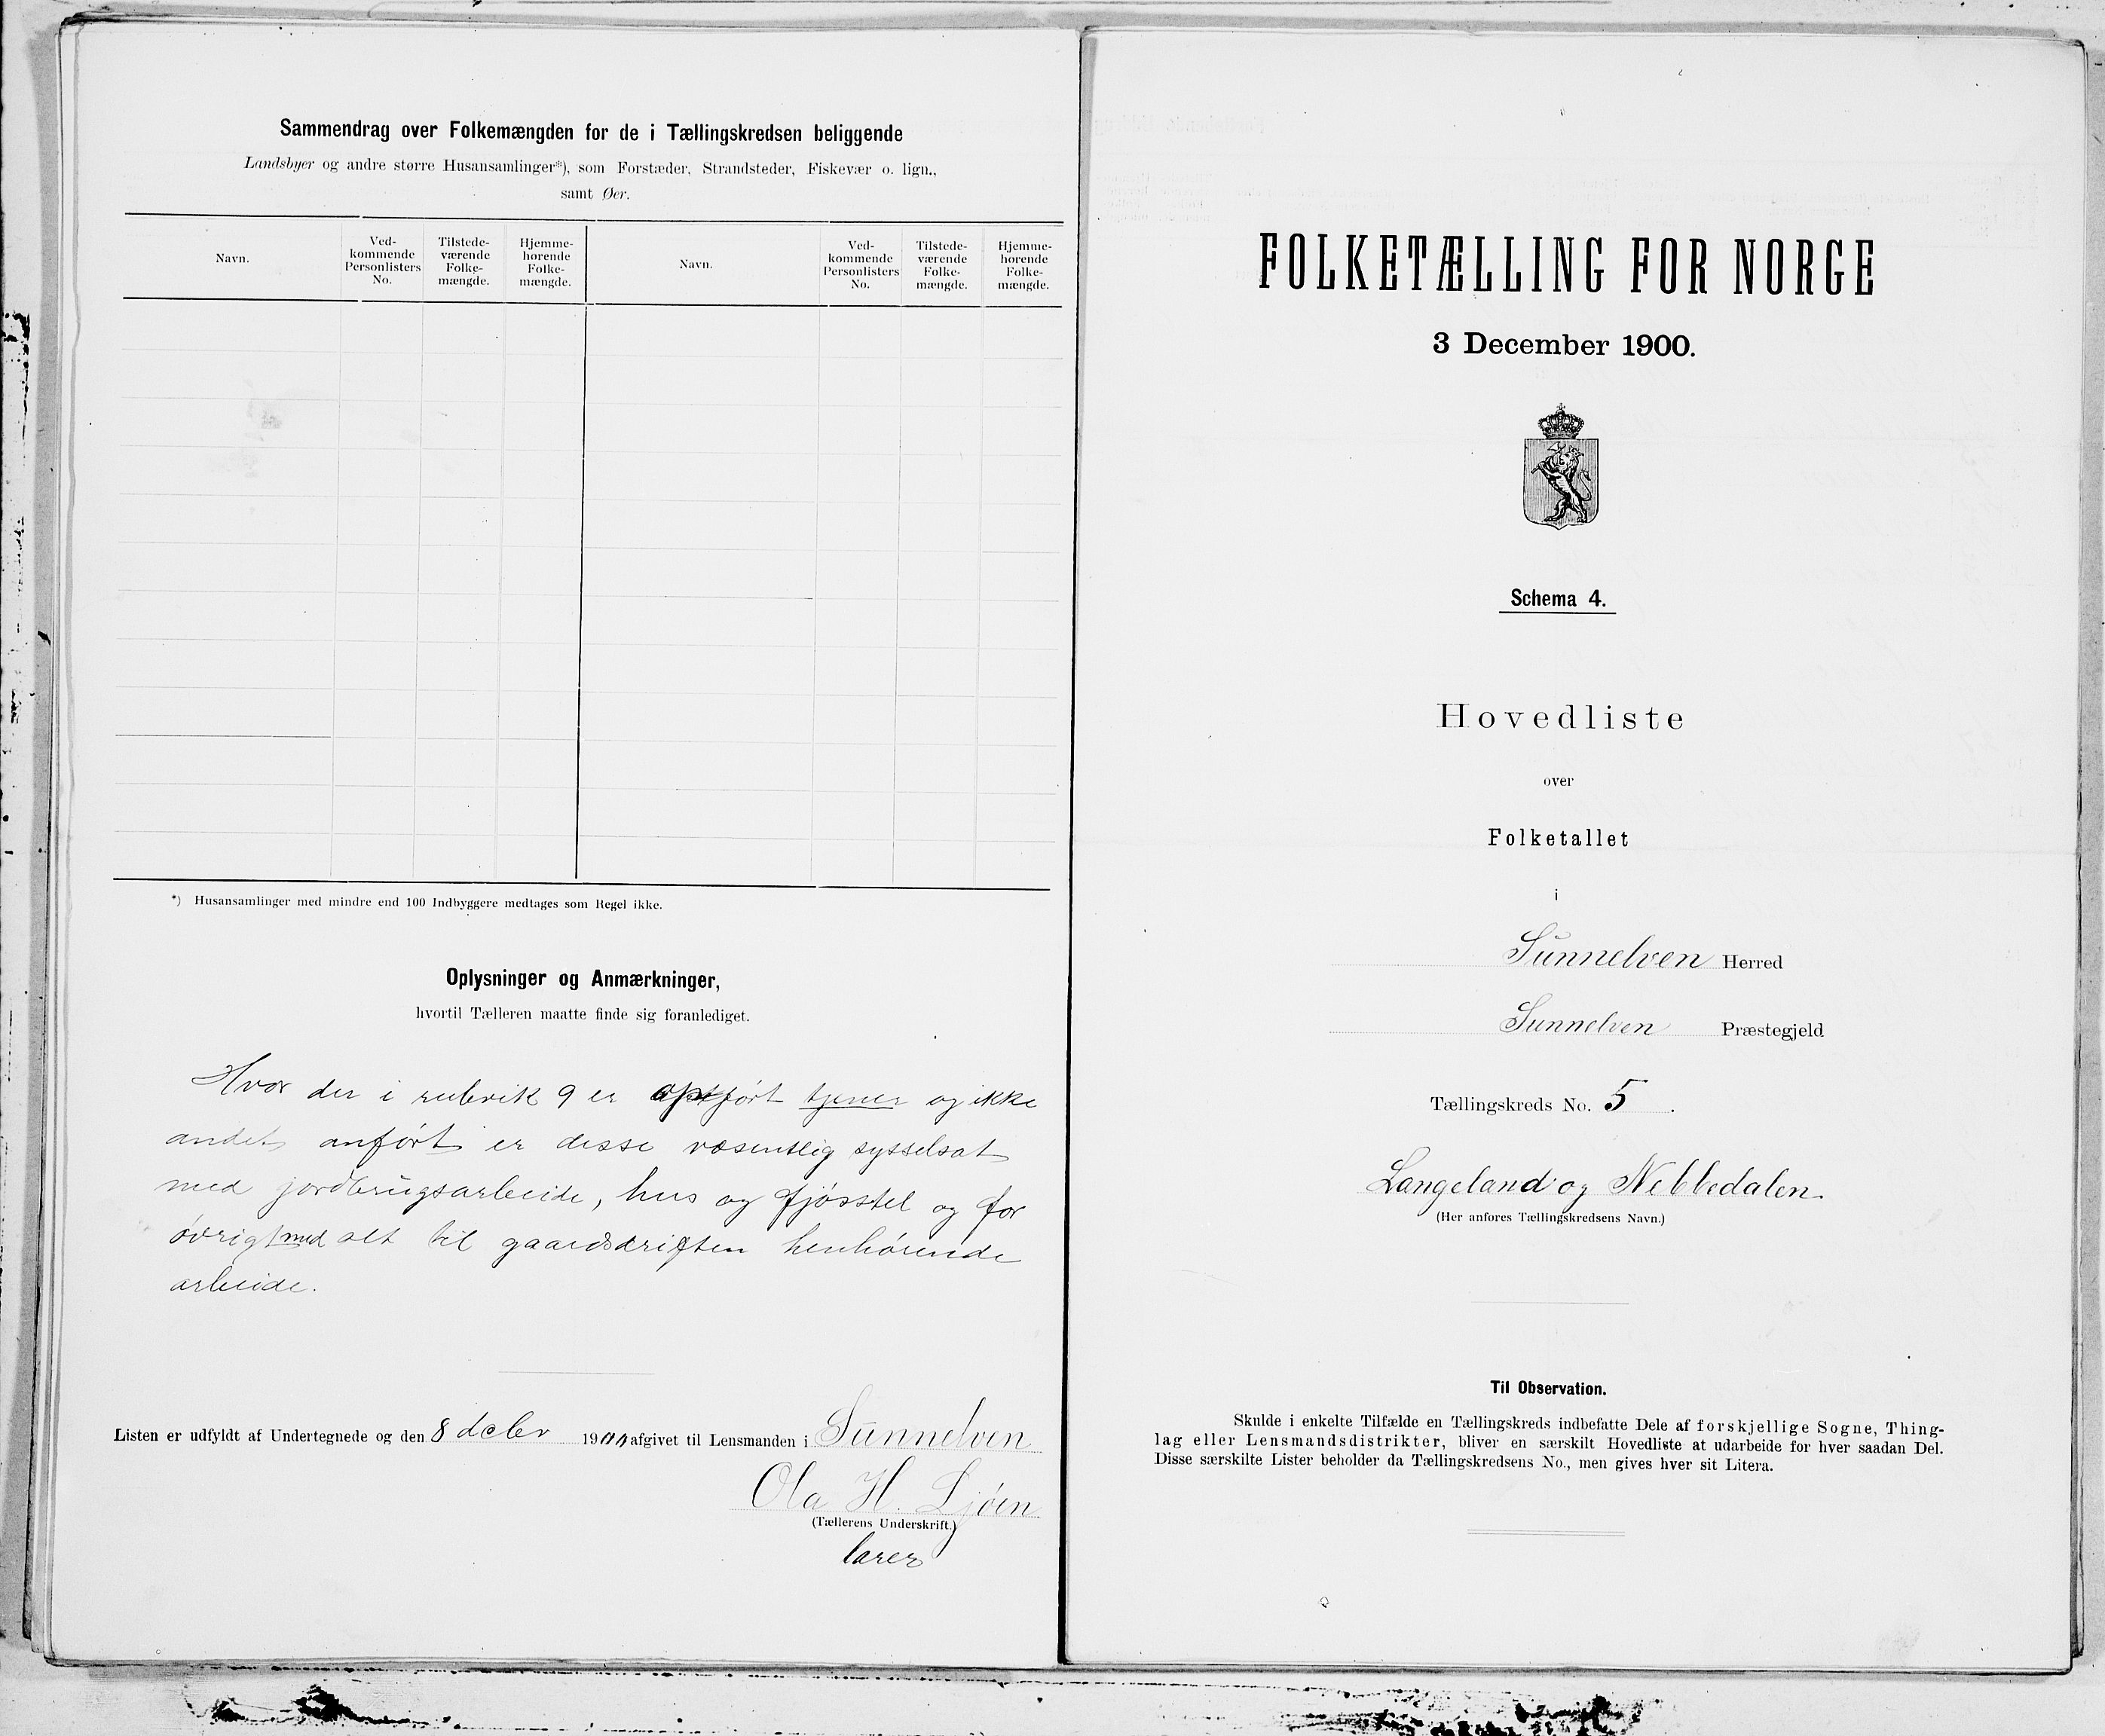 Sammendrag over Folkemængden for de i Tællingskredsen beliggende
Landsbyer og andre større Husansamlinger*), som Forstæder, Strandsteder, Fiskevær o. lign.,
samt Øer.
Navn.
Ved-
kommende
Personlisters
No.
Tilstede-
værende
Folke-
mængde.
Hjemme-
hørende
Folke-
mængde.
Navn.
Ved-
kommende
Personlisters
No.
Tilstede-
værende
Folke-
mængde.
Hjemme-
hørende
Folke-
mængde.
*) Husansamlinger med mindre end 100 Indbyggere medtages som Regel ikke.
Oplysninger og Anmærkninger,
hvortil Tælleren maatte finde sig foranlediget.
Hvor der i rubrik 9 er opført tjener og ikke
andet anført er disse væsentlig sysselsat
med jordbrugsarbeide, hus og fjøsstel og for
øvrigt med alt til gaardsdriften henhørende
arbeide.
Listen er udfyldt af Undertegnede og den 8 debr 1900 afgivet til Lensmanden i Sunnelven
Ola H. Ljøen
(Tællerens Underskrift.)
lærer
FOLKETÆLLING FOR NORGE
3 December 1900.
Schema 4.
Hovedliste
over
Folketallet
i
Sunnelven Herred
Sunnelven Præstegjeld
Tællingskreds No. 5.
Langeland og Nebbedalen
(Her anføres Tællingskredsens Navn.)
Til Observation.
Skulde i enkelte Tilfælde en Tællingskreds indbefatte Dele af forskjellige Sogne, Thing-
lag eller Lensmandsdistrikter, bliver en særskilt Hovedliste at udarbeide for hver saadan Del.
Disse særskilte Lister beholder da Tællingskredsens No., men gives hver sit Litera.